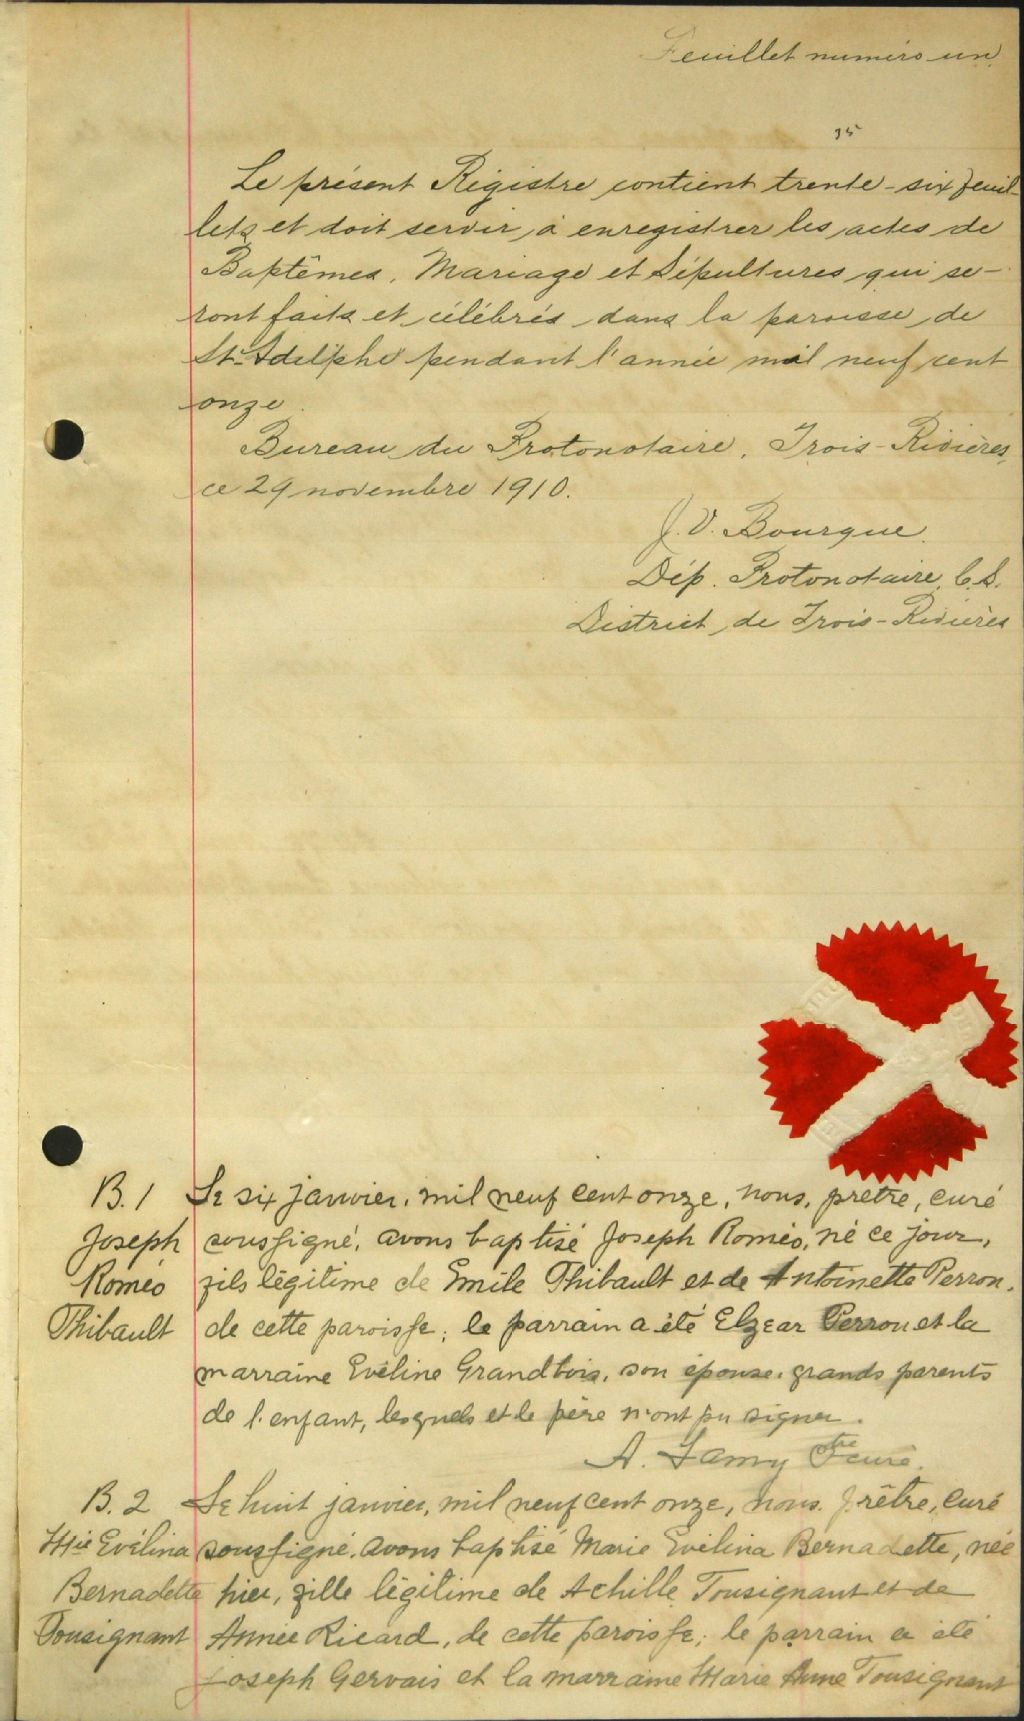 Feuillet numéro un
35
Le présent Régistre contient trente-six feuil-
lets et doit servir à enregistrer les actes de
Baptêmes, Mariage et Sépultures qui se-
ront faits et célébrés dans la paroisse de
St-Adelphe pendant l'année mil neuf cent
onze.
Bureau du Protonotaire, Trois-Rivières,
ce 29 novembre 1910.
J. V. Bourque.
Dép. Protonotaire, C. S.
District de Trois-Rivières
B. 1
Joseph
Roméo
Thibault
Le six janvier, mil neuf cent onze, nous, prêtre, curé
soussigné, avons baptisé Joseph Roméo, né ce jour,
fils légitime de Emile Thibault et de Antoinette Perron,
de cette paroisse; le parrain a été Elzear Perron et la
marraine Eveline Grandbois, son épouse, grands parents
de l'enfant, lesquels et le père n'ont pu signer.
A. Lamy Ptre curé.
B. 2
Mie Evélina
Bernadette
Tousignant
Le huit janvier, mil neuf cent onze, nous, prêtre, curé
soussigné, avons baptisé Marie Evélina Bernadette, née
hier, fille légitime de Achille Tousignant et de
Année Ricard, de cette paroisse; le parrain a été
Joseph Gervais et la marraine Marie Anne Tousignant